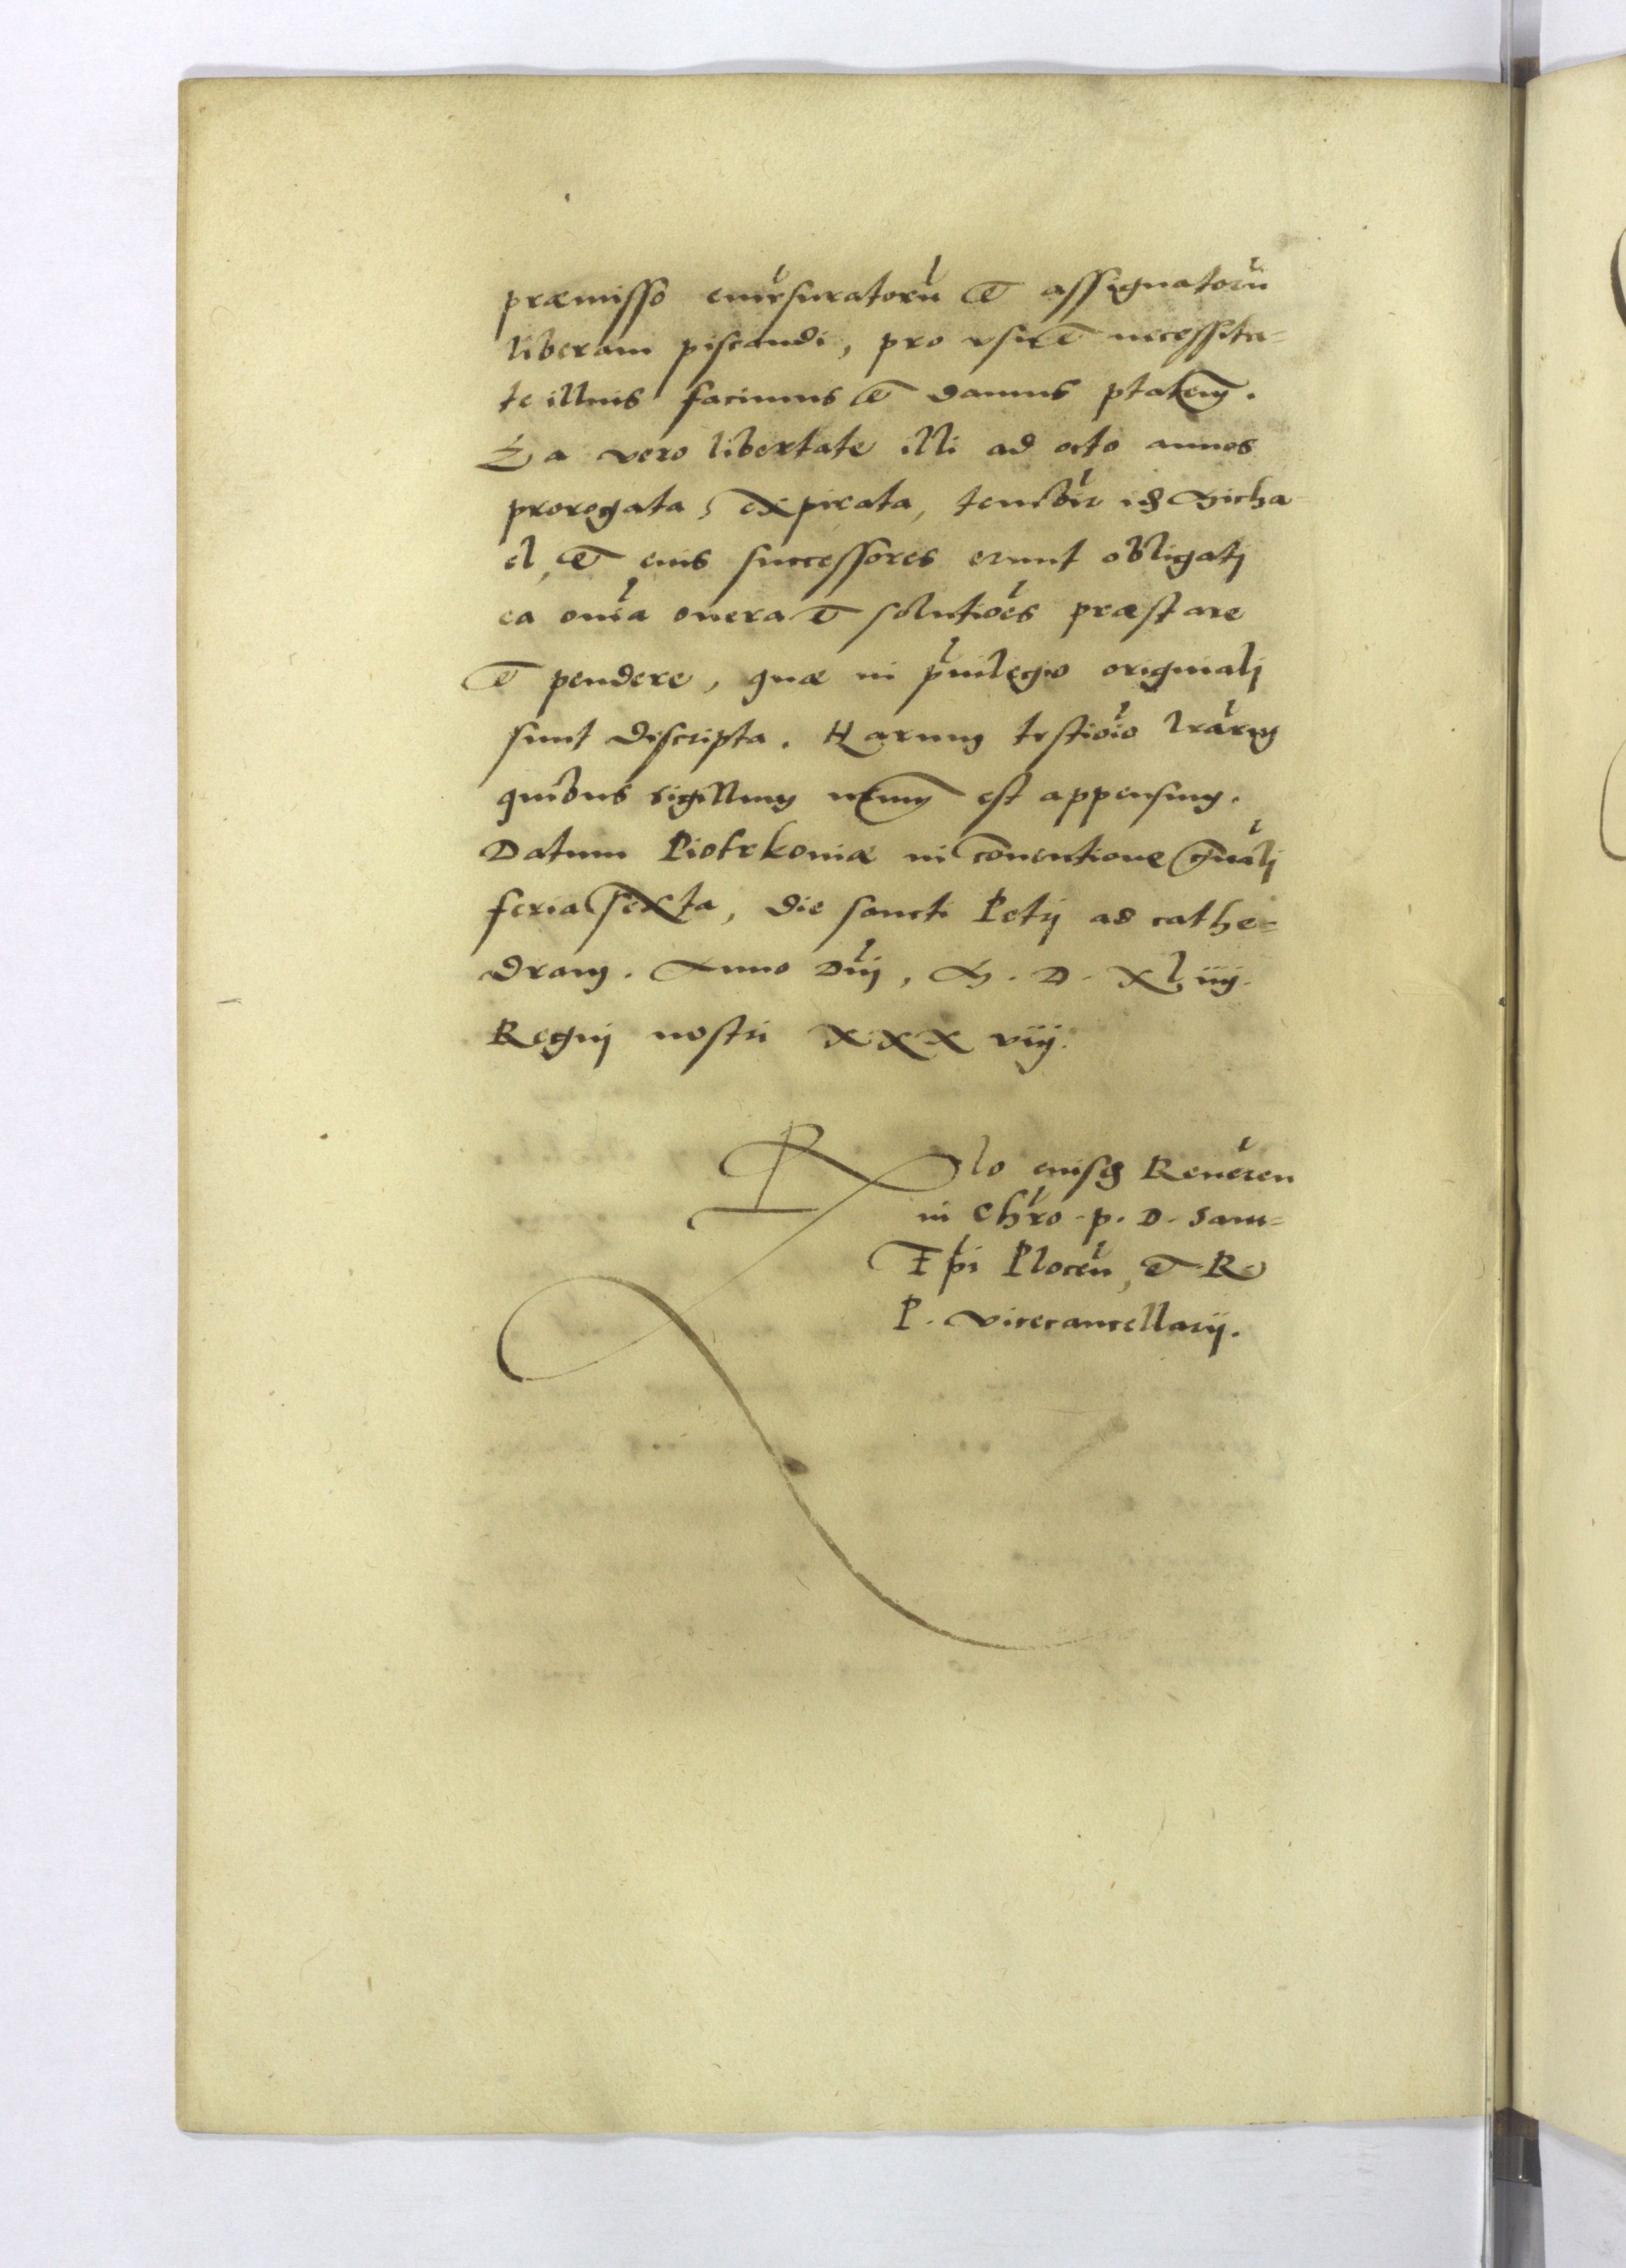 præmisso emẽsuratorũ et assignatorũ
liberam piscandi, pro vsu et necessita=
te illius facimus et damus ptatem.
Ea vero libertate illi ad octo annos
prorogata, expirata, tenebit idem Micha-
el, et eius successores erunt obligatj
ea oĩa onera et solutiões præstare
et pendere, quæ in priuilegio originalj
sunt discripta. Harum testiõio lrarum
quibus sigillum nrum est appensum.
Datum Piotrkoniæ in conuentione gñalj
feria sexta, die sancti Petrj ad cathe=
dram. Anno Dñj, M. D. XLiiij.
Regnj nostri XXXviij.
Rlo eiusdem Reueren
in Chro. p. D. Sam=
Epi Plocen, et R
P. vicecancellarij.